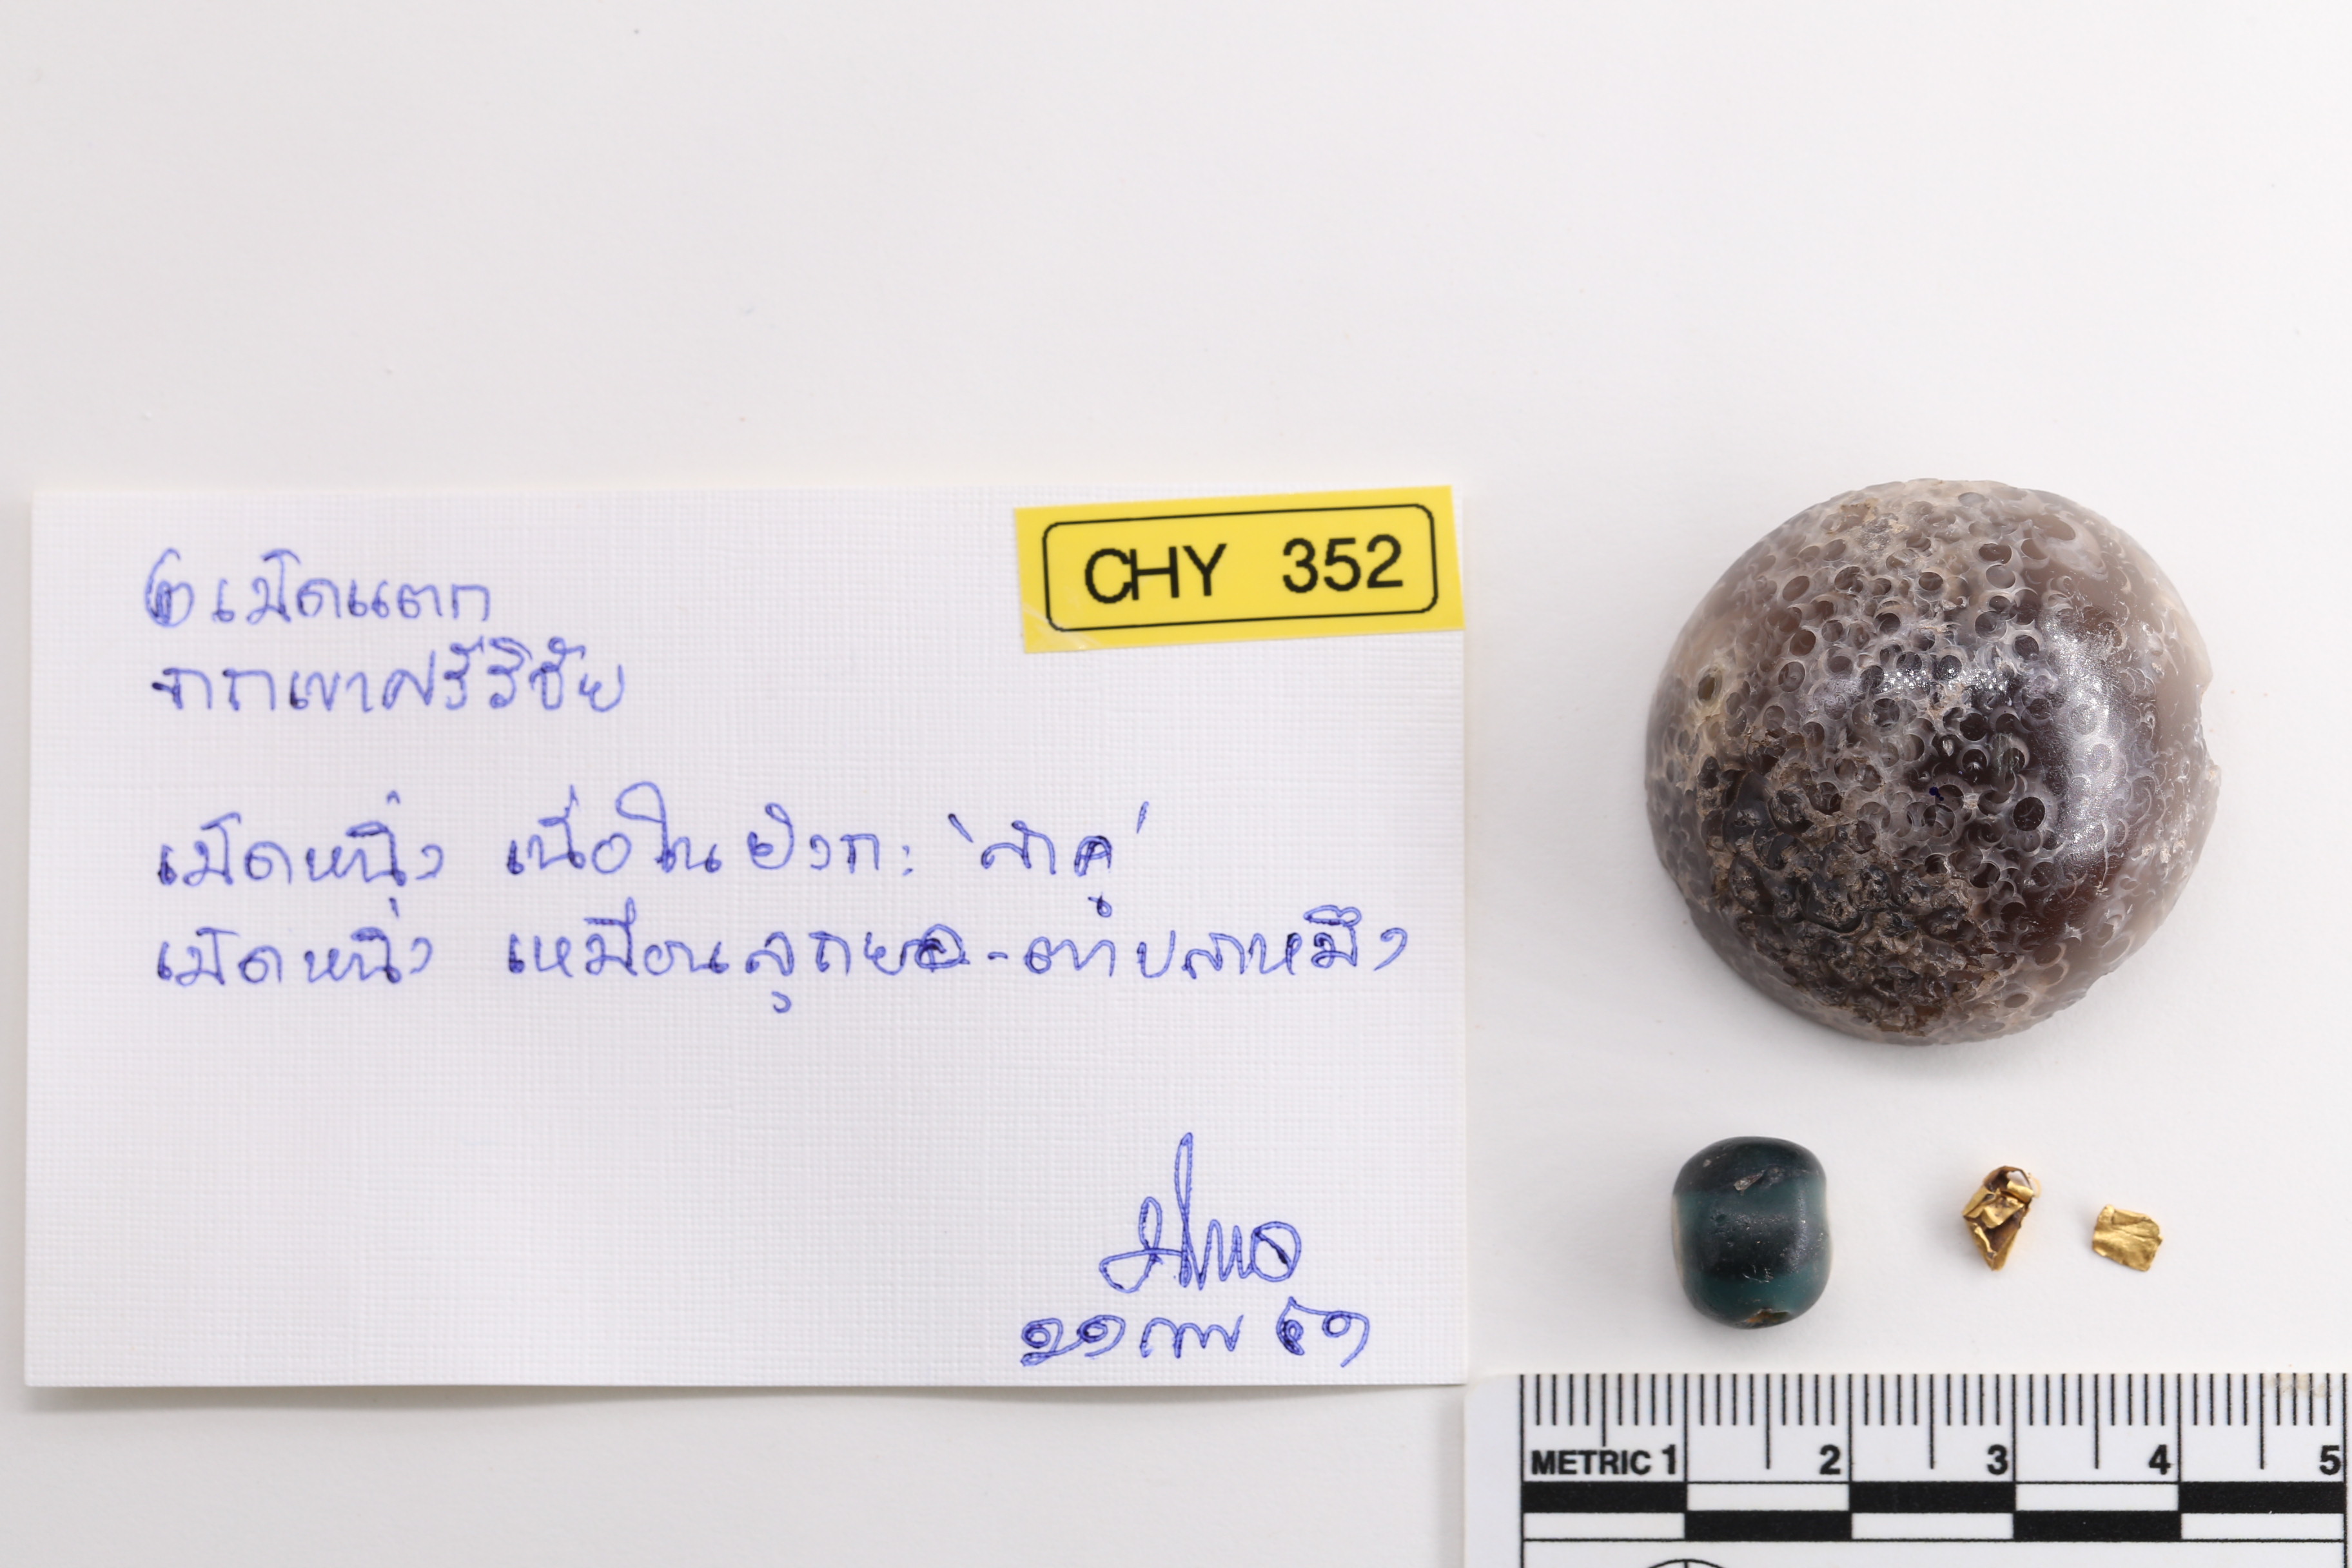 ๒ เม็ดแตก
จากเขาศรีวิชัย
CHY 352
เม็ดหนึ่ง เนื้อใน ยังกะ 'สาคู'
เม็ดหนึ่ง เหมือนลูกยอ-ตาปลาหมึก
๑๑ กพ ๖๑
METRIC 1 2 3 4 5